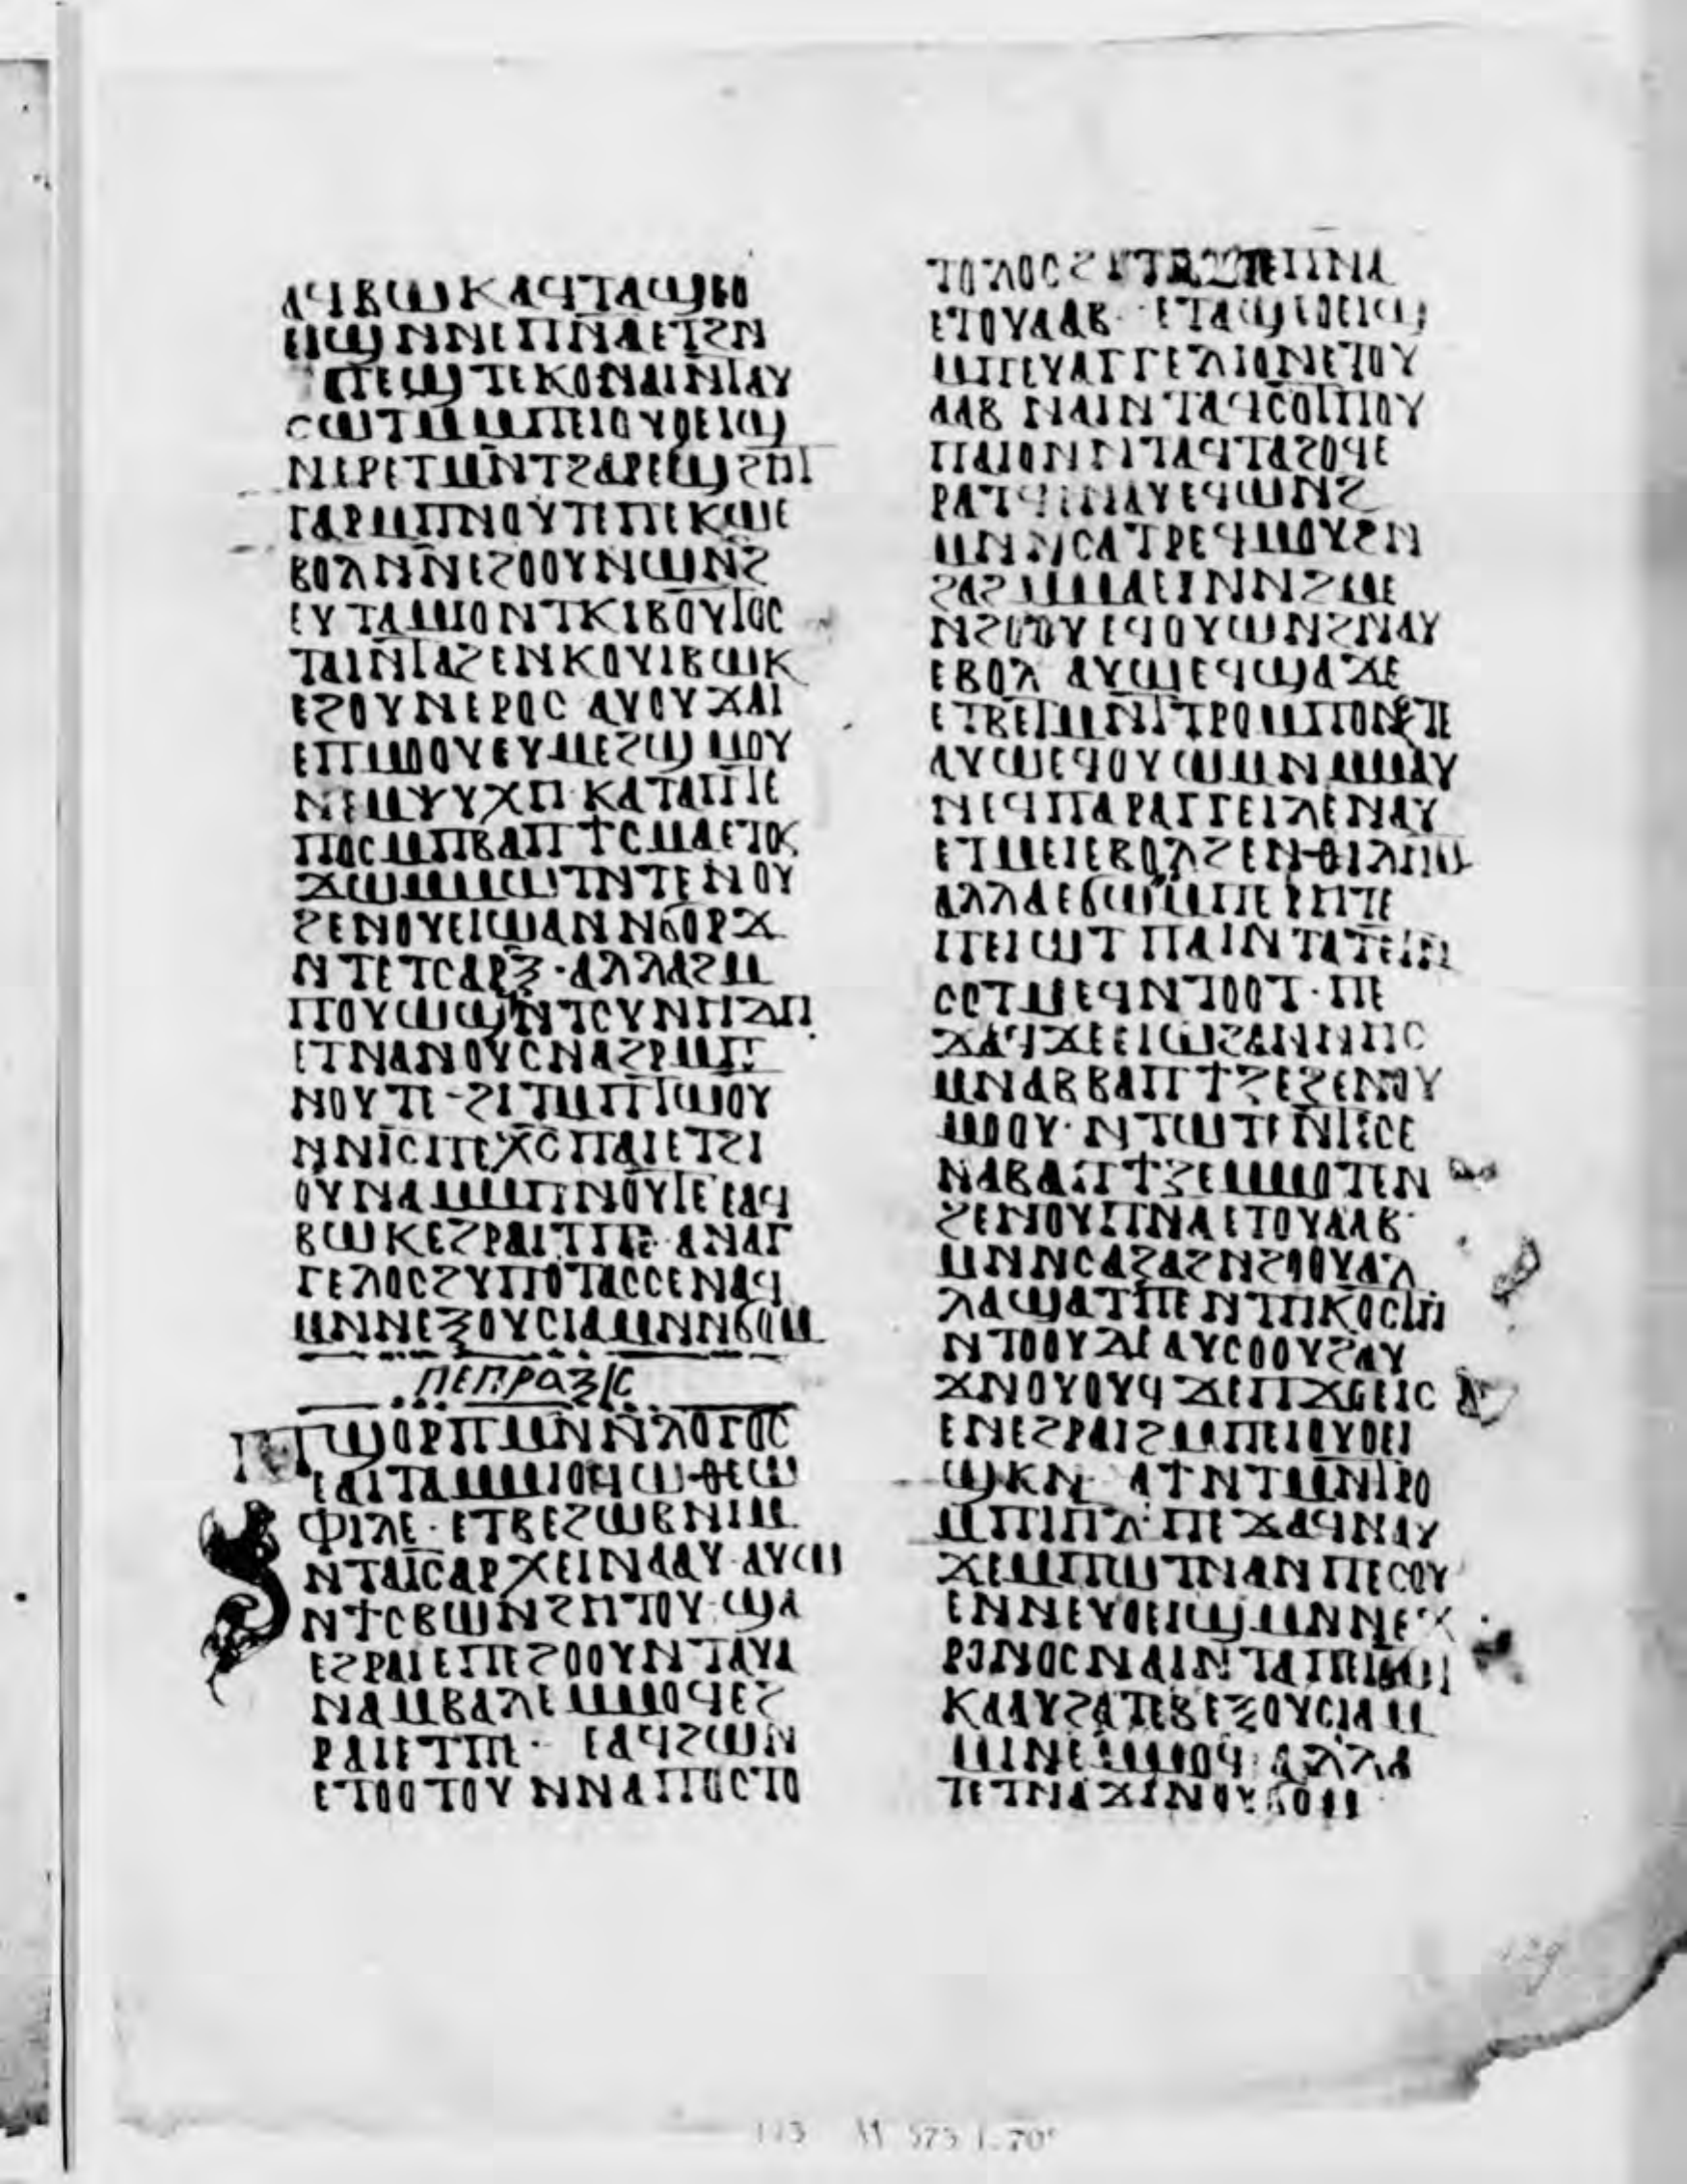 ⲁϥⲃⲱⲕ ⲁϥⲧⲁϣⲉⲟ
ⲉⲓϣ ⲛⲛⲉⲡⲛ̅ⲁ ⲉⲧϩⲛ
ⲡⲉϣⲧⲉⲕⲟ ⲛⲁⲓ ⲛ̅ⲧⲁⲩ
ⲥⲱⲧⲙ ⲙⲡⲉⲓⲟⲩⲟⲉⲓϣ
ⲛⲉⲣⲉⲧⲙⲛⲧϩⲁⲣⲉϣϩⲏⲧ
ⲅⲁⲣ ⲙⲡⲛⲟⲩⲧⲉ ⲡⲉⲕⲱⲉ
ⲃⲟⲗ ⲛⲛⲉϩⲟⲟⲩ ⲛⲱⲛ̅ϩ
ⲉⲩⲧⲁⲙⲓⲟ ⲛⲧⲕⲓⲃⲟⲩⲧⲟⲥ
ⲧⲁⲓ ⲛ̅ⲧⲁϩⲉⲛⲕⲟⲩⲓ ⲃⲱⲕ
ⲉϩⲟⲩⲛ ⲉⲣⲟⲥ ⲁⲩⲟⲩϫⲁⲓ
ⲉⲡⲙⲟⲟⲩ ⲉⲩⲙⲉϩϣⲙⲟⲩ
ⲛⲉⲙⲯⲩⲭⲏ ⲕⲁⲧⲁ ⲡⲧⲉ
ⲡⲟⲥ ⲙⲡⲃⲁⲡϯⲥⲙⲁ ⲉⲧⲟⲕ
ϫⲱⲙⲙⲱⲧⲛ ⲧⲉⲛⲟⲩ
ϩⲉⲛⲟⲩⲉⲓⲱ ⲁⲛ ⲛϭⲟⲣϫ
ⲛⲧⲉⲧⲥⲁⲣⲝ · ⲁⲗⲗⲁ ϩⲙ
ⲡⲟⲩⲱϣ ⲛⲧⲥⲩⲛⲏⲇⲏ
ⲉⲧⲛⲁⲛⲟⲩⲥ ⲛⲁϩⲣⲙⲡ
ⲛⲟⲩⲧⲉ - ϩⲓⲧⲙ ⲡⲧⲱⲟⲩ
ⲛⲛ ⲓ̅ⲥ ⲡⲉⲭ̅ⲥ ⲡⲁⲓ ⲉⲧϩⲓ
ⲟⲩⲛⲁⲙ ⲙⲡⲛⲟⲩⲧⲉ ⲉⲁϥ
ⲃⲱⲕ ⲉϩⲣⲁⲓ ⲧⲡⲉ · ⲁⲛⲁⲅ
ⲅⲉⲗⲟⲥ ϩⲩⲡⲟⲧⲁⲥⲥⲉ ⲛⲁϥ
ⲙⲛⲛⲉⲝⲟⲩⲥⲓⲁ ⲙⲛⲛϭⲟⲙ
ⲡⲉⲡⲣⲁⲝⲓⲥ
ⲡϣⲟⲣⲡ ⲙⲉⲛ ⲛⲗⲟⲅⲟⲥ
ⲉⲁⲓⲧⲁⲙⲙⲓⲟϥ ⲱ ⲑⲉⲱ
ⲫⲓⲗⲉ · ⲉⲧⲃⲉ ϩⲱⲃ ⲛⲓⲙ
ⲛⲧⲁⲓ̅ⲥ ⲁⲣⲭⲉⲓ ⲛⲁⲁⲩ ⲁⲩⲱ
ⲛϯⲥⲃⲱ ⲛϩⲏⲧⲟⲩ · ϣⲁ
ⲉϩⲣⲁⲓ ⲉⲡⲉϩⲟⲟⲩ ⲛⲧⲁⲩⲁ
ⲛⲁⲙⲃⲁⲗⲉ ⲙⲙⲟϥ ⲉϩ
ⲣⲁⲓ ⲉⲧⲡⲉ · ⲉⲁϥϩⲱⲛ
ⲉⲧⲟⲟⲧⲟⲩ ⲛⲛⲁⲡⲟⲥⲧⲟ
ⲧⲟⲗⲟⲥ ⲡⲉⲡⲛⲁ
ⲉⲧⲟⲩⲁⲁⲃ · ⲉⲧⲁϣⲉⲟⲉⲓϣ
ⲙⲡⲉⲩⲁⲅⲅⲉⲗⲓⲟⲛ ⲉⲧⲟⲩ
ⲁⲁⲃ ⲛⲁⲓ ⲛⲧⲁϥⲥⲟⲧⲡⲟⲩ
ⲡⲁⲓ ⲟⲛ ⲛⲧⲁϥⲧⲁϩⲟϥ ⲉ
ⲣⲁⲧϥ ⲛⲁⲩ ⲉϥⲱⲛϩ
ⲙⲛⲛⲥⲁ ⲧⲣⲉϥⲙⲟⲩ ϩⲛ
ϩⲁϩ ⲙⲙⲁⲉⲓⲛ ⲛϩⲙⲉ
ⲛϩⲟⲟⲩ ⲉϥⲟⲩⲱⲛϩ ⲛⲁⲩ
ⲉⲃⲟⲗ ⲁⲩⲱ ⲉϥϣⲁϫⲉ
ⲉⲧⲃⲉ ⲧⲙⲛⲧⲣⲟ ⲙⲡⲛⲟⲩⲧⲉ
ⲁⲩⲱ ⲉϥⲟⲩⲱⲙ ⲛⲙⲙⲁⲩ
ⲛⲉϥⲡⲁⲣⲁⲅⲅⲉⲓⲗⲉ ⲛⲁⲩ
ⲉⲧⲙⲉⲓ ⲉⲃⲟⲗ ϩⲉⲛ ⲑⲓⲗⲏⲙ
ⲁⲗⲗⲁ ⲉϭⲱ ⲙⲡⲉⲣⲏⲧⲉ
ⲡⲉⲓⲱⲧ ⲡⲁⲓ ⲛⲧⲁⲧⲉⲧⲛ
ⲥⲟⲧⲙⲉϥ ⲛⲧⲟⲟⲧ · ⲡⲉ
ϫⲁϥ ϫⲉ ⲉⲓⲱϩⲁⲛⲛⲏⲥ
ⲙⲉⲛ ⲁⲃⲃⲁⲡϯⲍⲉ ϩⲉⲛⲟⲩ
ⲙⲟⲟⲩ · ⲛⲧⲱⲧⲉⲛ ⲇⲉ ⲥⲉ
ⲛⲁⲃⲁⲡϯⲍⲉ ⲙⲙⲟⲧⲉⲛ
ϩⲉⲛⲟⲩⲡⲛⲁ ⲉⲧⲟⲩⲁⲁⲃ ·
ⲙⲛⲛⲥⲁ ϩⲁϩ ⲛϩⲟⲟⲩ ⲁⲗ
ⲗⲁ ϣⲁ ⲧⲡⲉⲛⲧⲏⲕⲟⲥⲧⲏ
ⲛⲧⲟⲟⲩ ⲇⲉ ⲁⲩⲥⲟⲟⲩϩ ⲁⲩ
ϫⲛⲟⲩⲟⲩϥ ϫⲉ ⲡϫⲟⲉⲓⲥ
ⲉⲛⲉϩⲣⲁⲓ ϩⲙ ⲡⲉⲓⲟⲩⲟⲉⲓ
ϣ ⲕⲛⲁϯ ⲛⲧⲙⲛⲧⲣⲟ
ⲙⲡⲓⲏⲗ · ⲡⲉϫⲁϥ ⲛⲁⲩ
ϫⲉ ⲙⲡⲱⲧⲛ ⲁⲛ ⲡⲉ ⲥⲟⲩ
ⲉⲛ ⲛⲉⲩⲟⲉⲓϣ ⲙⲛ ⲛⲉⲭ
ⲣⲟⲛⲟⲥ ⲛⲁⲓ ⲛⲧⲁ ⲡⲉⲓⲱⲧ
ⲕⲁⲁⲩ ϩⲁ ⲧⲉϥⲉⲝⲟⲩⲥⲓⲁ ⲙ
ⲙⲓⲛⲉ ⲙⲙⲟϥ · ⲁⲗⲗⲁ
ⲧⲉⲧⲛⲁϫⲓ ⲛⲟⲩϭⲟⲙ